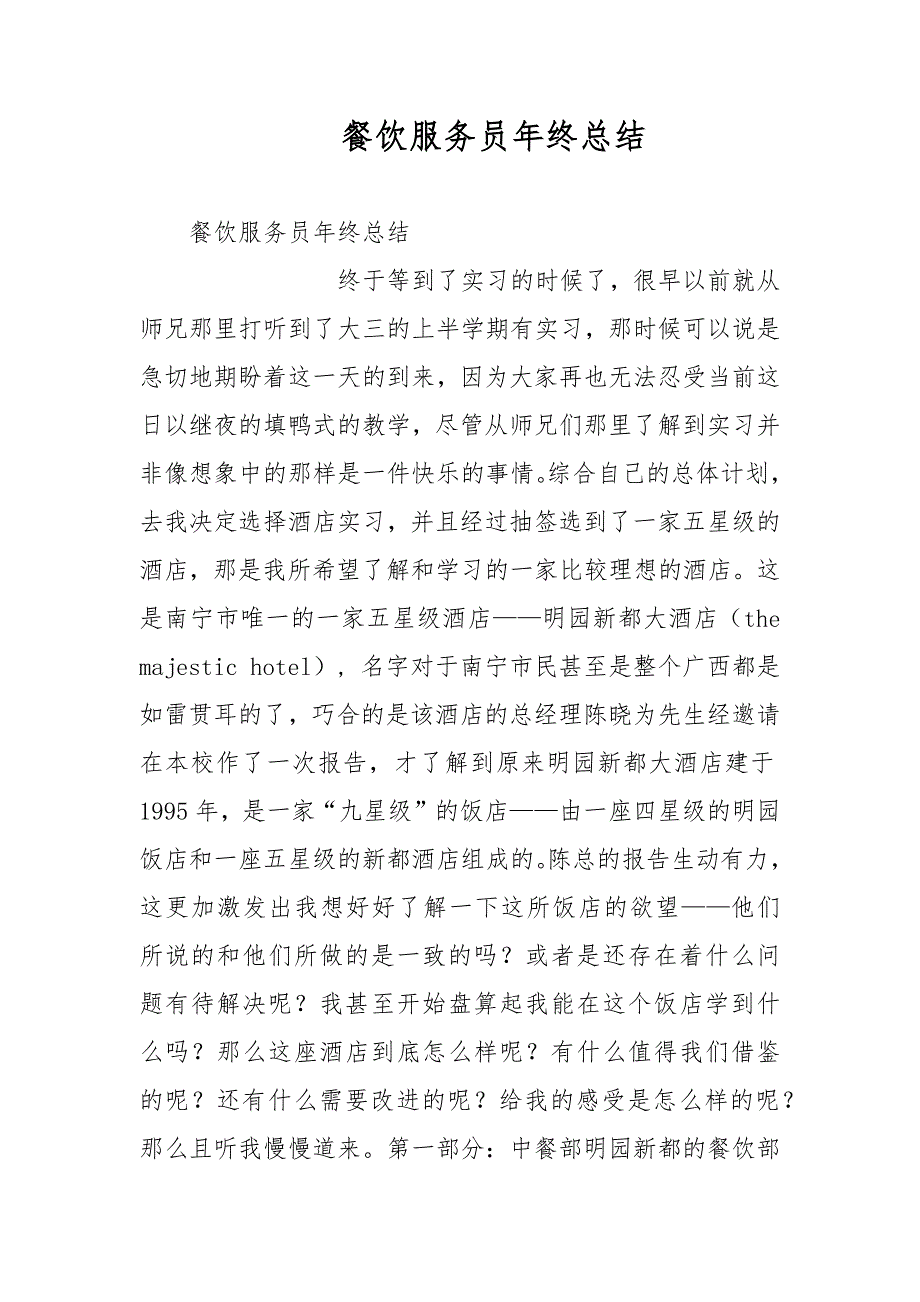 餐饮服务员年终总结
餐饮服务员年终总结
终于等到了实习的时候了，很早以前就从
师兄那里打听到了大三的上半学期有实习，那时候可以说是
急切地期盼着这一天的到来，因为大家再也无法忍受当前这
日以继夜的填鸭式的教学，尽管从师兄们那里了解到实习并
非像想象中的那样是一件快乐的事情。综合自己的总体计划，
去我决定选择酒店实习，并且经过抽签选到了一家五星级的
酒店，那是我所希望了解和学习的一家比较理想的酒店。这
是南宁市唯一的一家五星级酒店——明园新都大酒店（the
majestic hotel），名字对于南宁市民甚至是整个广西都是
如雷贯耳的了，巧合的是该酒店的总经理陈晓为先生经邀请
在本校作了一次报告，才了解到原来明园新都大酒店建于
1995 年，是一家“九星级”的饭店——由一座四星级的明园
饭店和一座五星级的新都酒店组成的。陈总的报告生动有力，
这更加激发出我想好好了解一下这所饭店的欲望——他们
所说的和他们所做的是一致的吗？或者是还存在着什么问
题有待解决呢？我甚至开始盘算起我能在这个饭店学到什
么吗？那么这座酒店到底怎么样呢？有什么值得我们借鉴
的呢？还有什么需要改进的呢？给我的感受是怎么样的呢？
那么且听我慢慢道来。第一部分：中餐部明园新都的餐饮部